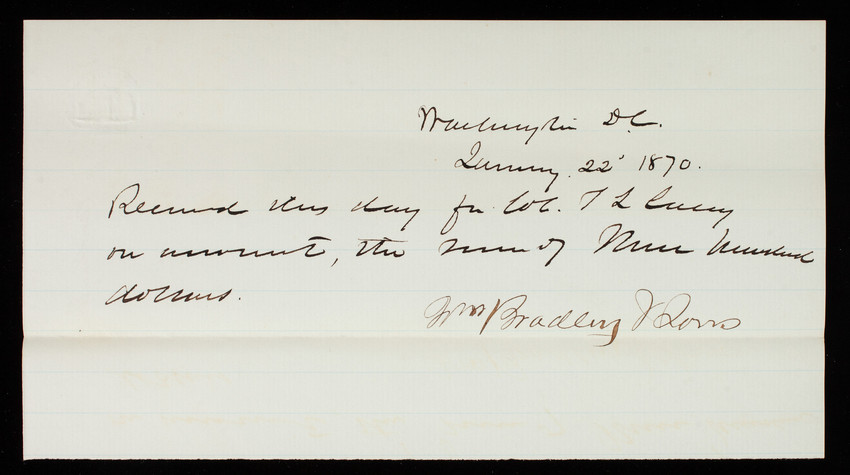 Washington D.C.
January 22' 1870.
Received this day fr Col. T L Casey
on account, the sum of Nine hundred
dollars.
Wm Bradley & Sons